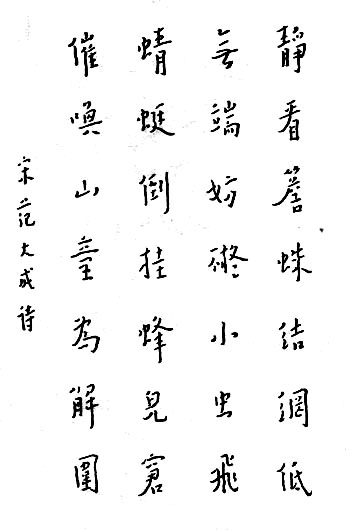 靜看簷蛛結網低
無端妨礙小虫飛
蜻蜓倒挂蜂兒窘
催喚山童為解圍
宋范大成诗